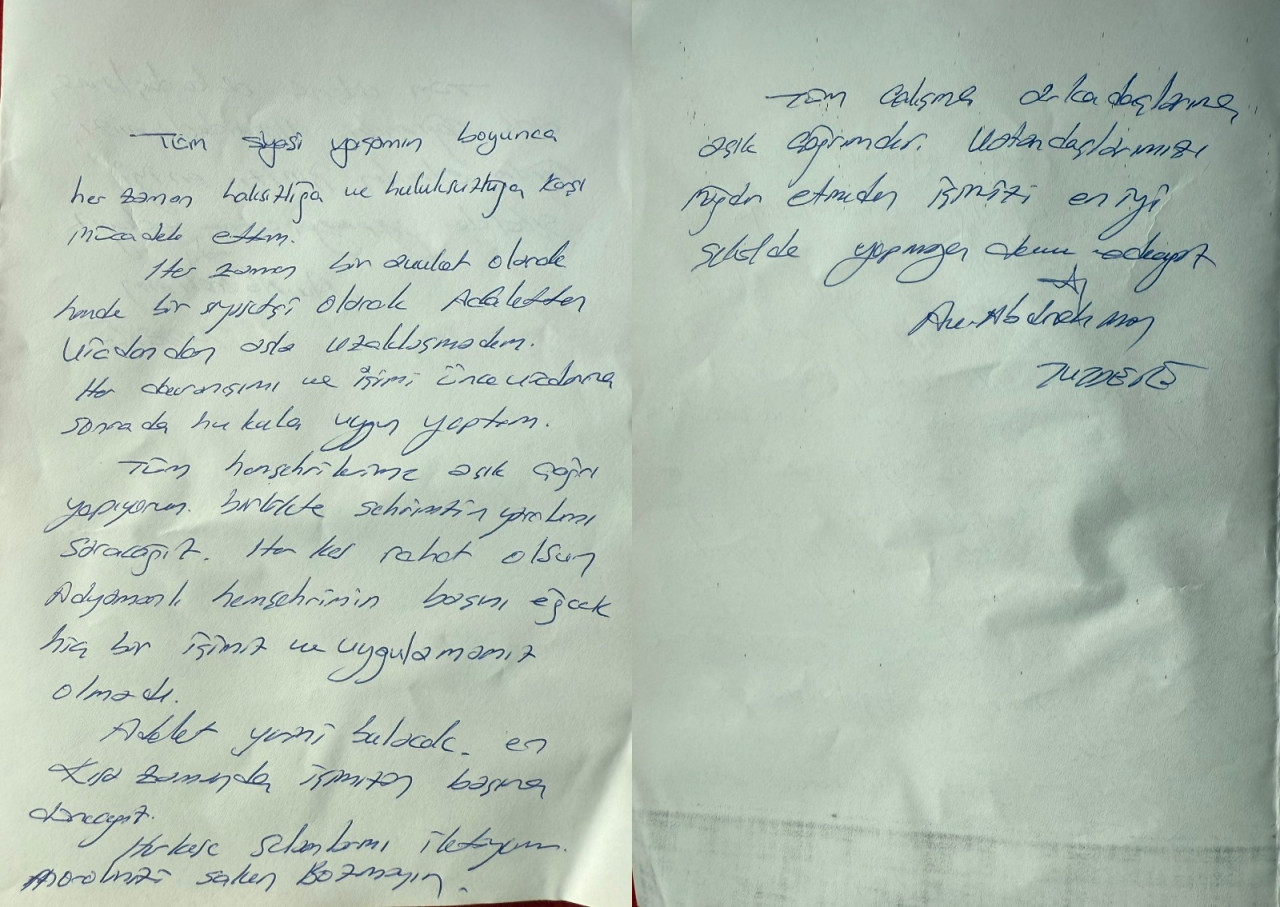 Tüm siyasi yaşamım boyunca
her zaman haksızlığa ve hukuksuzluğa karşı
mücadele ettim.
Her zaman bir avukat olarak
hemde bir siyasetçi olarak Adaletten
vicdandan asla uzaklaşmadım.
Her davranışımı ve işimi önce vicdanıma
sonrada hukuka uygun yaptım.
Tüm hemşehrilerime açık çağrı
yapıyorum. birlikte şehrimizin yaralarını
saracağız. Herkes rahat olsun
Adıyamanlı hemşehrimin başını eğecek
hiç bir işimiz ve uygulamamız
olmadı.
Adalet yerini bulacak. en
Kısa zamanda işimizin başına
döneceğiz.
Herkese selamlarımı iletiyorum.
Moralinizi sakın Bozmayın.
Tüm çalışma arkadaşlarıma
açık çağrımdır. Vatandaşlarımızı
mağdur etmeden işimizi en iyi
şekilde yapmaya devam edeceğiz
Av. Abdurrahman
TUTDERE